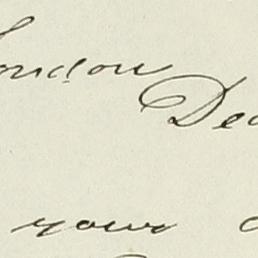 London
De
your